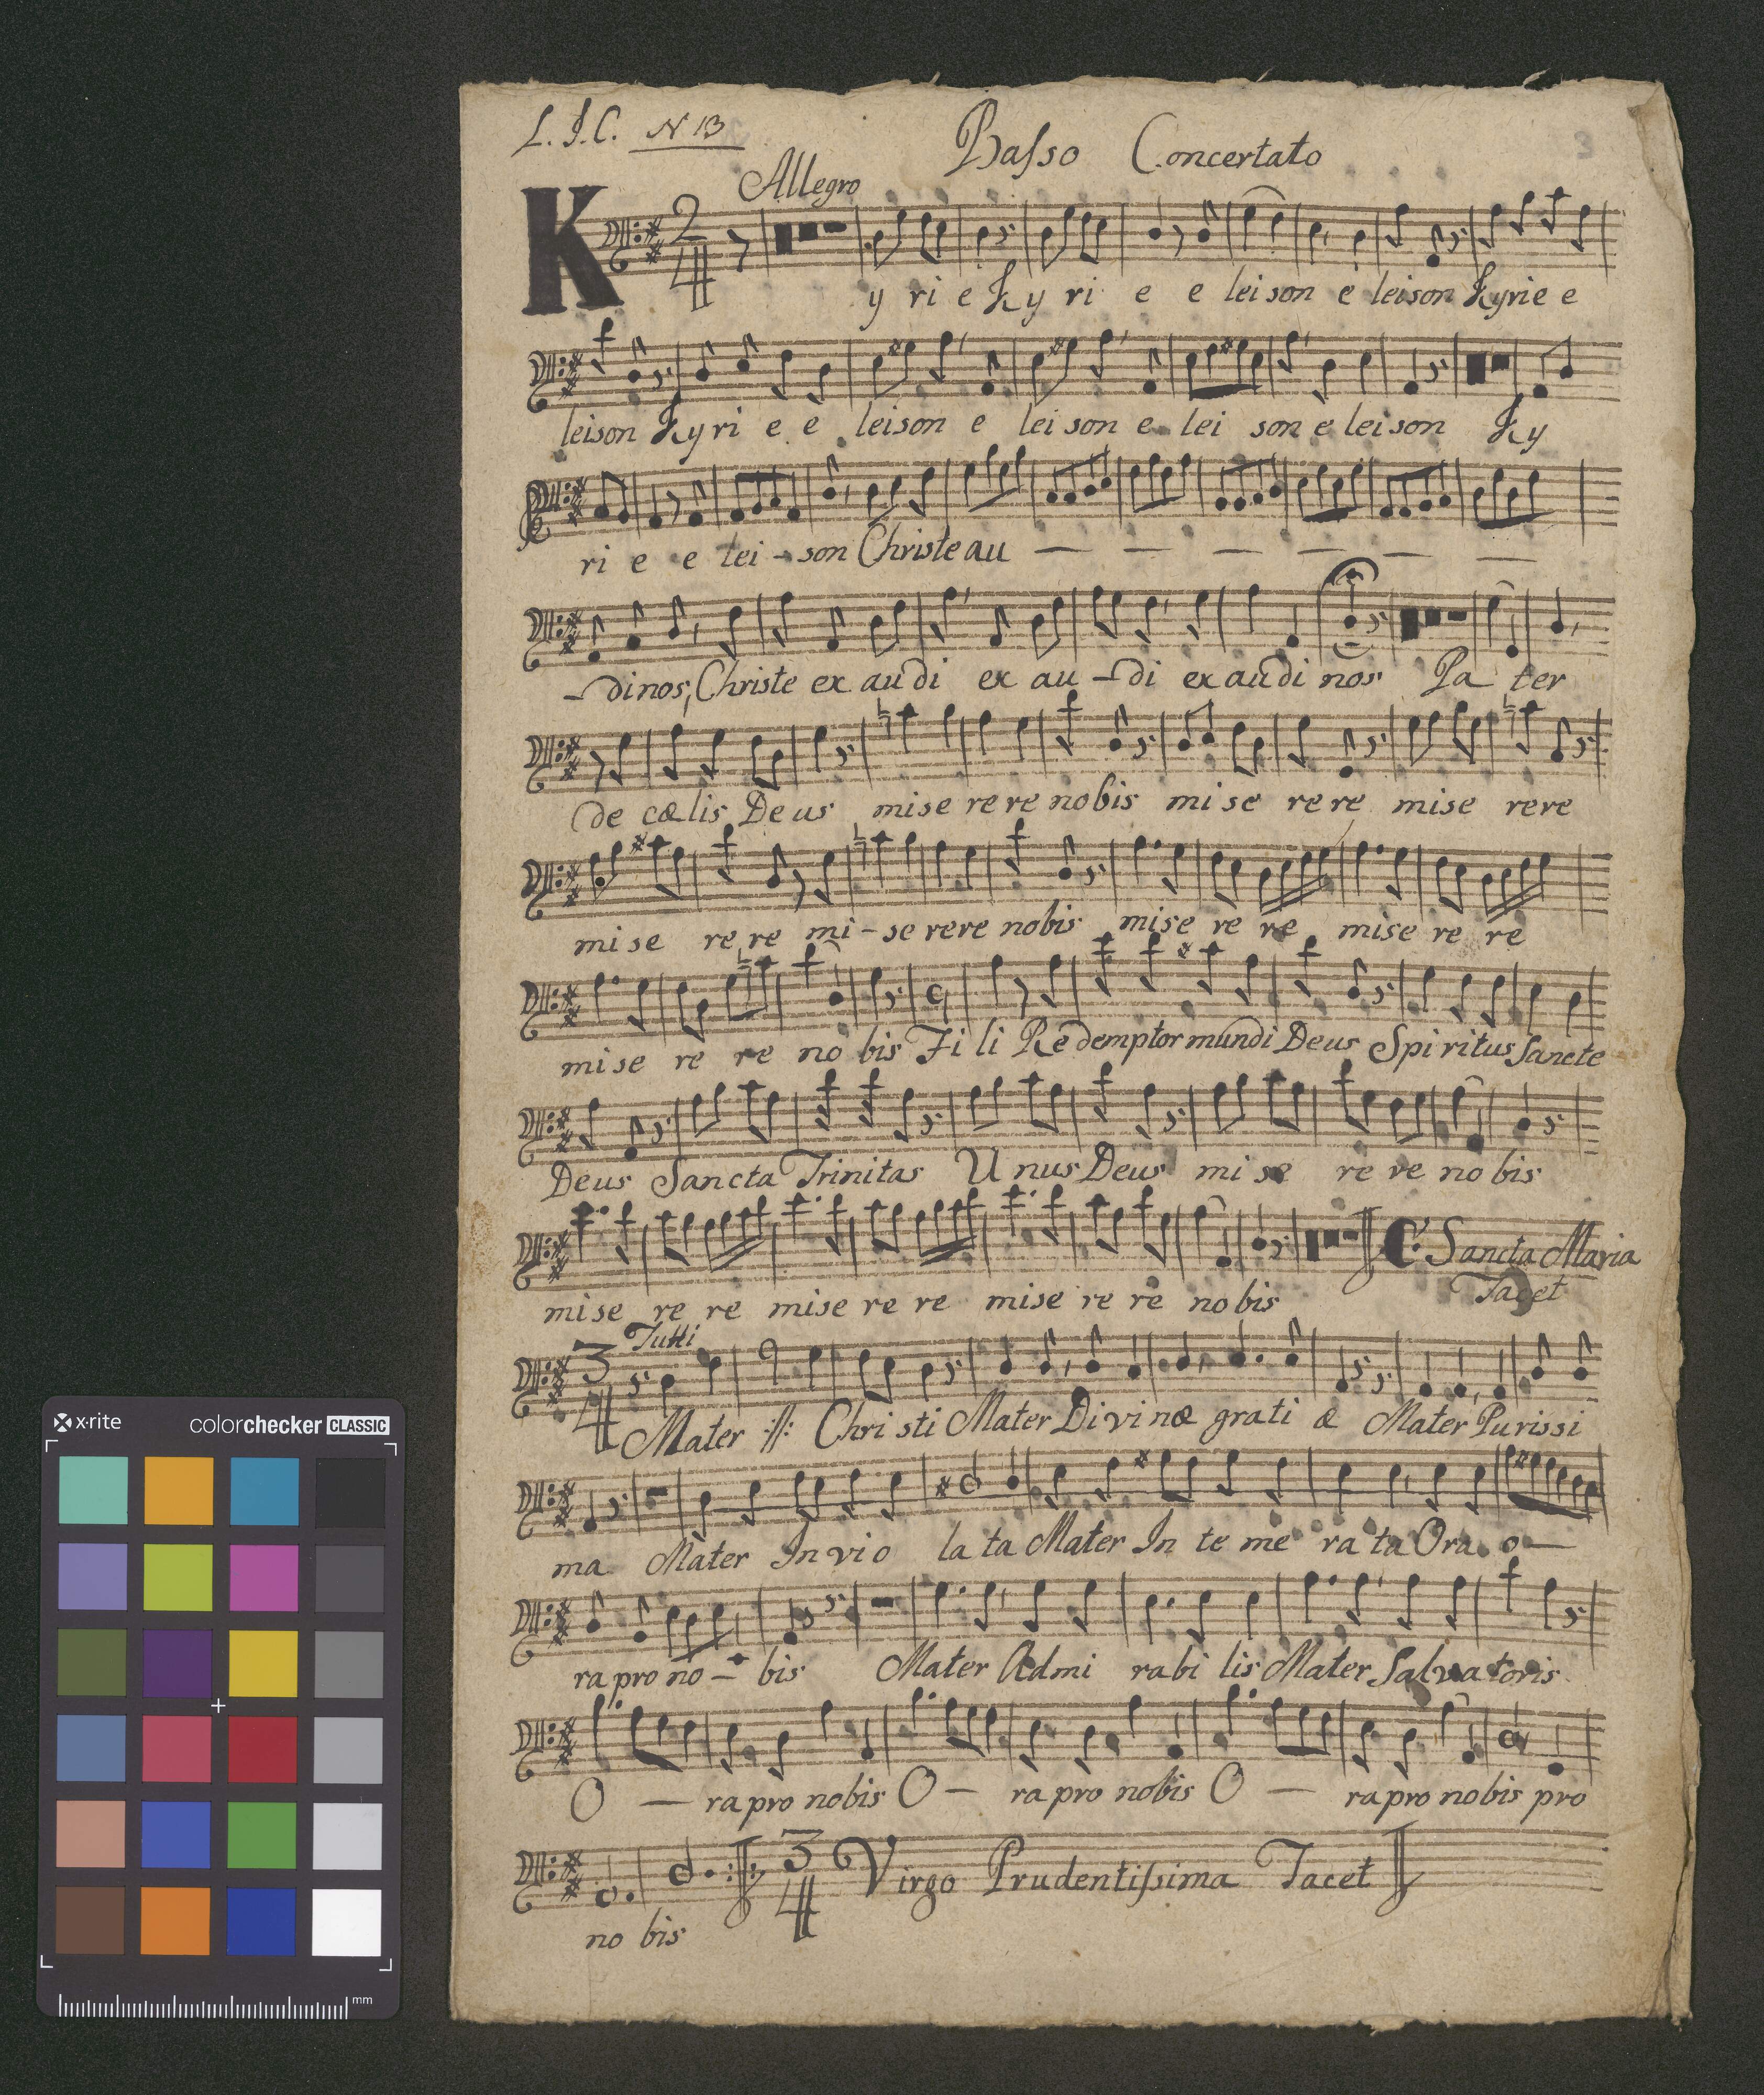 L. J. C. N 13
Basso Concertato
Allegro
K 2/4
y ri e Ky ri e e lei son e leison Kyrie e
leison Ky ri e e leison e lei son e lei son e lei son Ky
ri e e lei - son Christe au — — — — — —
- di nos, Christe ex au di ex au - di ex au di nos Pa ter
de cælis De us mise re re nobis mi se re re mise rere
mi se re re mi - se rere nobis mise re re mise re re
mi se re re no bis Fi li Redemptor mundi Deus Spi ritus Sancte
Deus Sancta Trinitas U nus Deus mi se re re no bis
C Sancta Maria
Tacet
mise re re mise re re mise re re no bis
Tutti
3/4
Mater :||: Chri sti Mater Di vi næ grati æ Mater Purissi
ma Mater In vi o la ta Mater In te me ra ta Ora o —
ra pro no - bis Mater Admi rabi lis Mater Salva toris
O — ra pro nobis O - ra pro nobis O — ra pro nobis pro
3/4 Virgo Prudentissima Tacet
no bis
x·rite colorchecker CLASSIC
mm